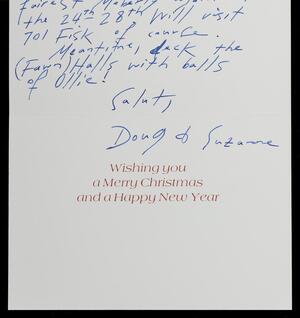 the 24th - 28th will visit
701 Fisk of course.
Meantime, deck the
(Fawn) Halls with balls
of Ollie!
Salut,
Doug & Suzanne
Wishing you
a Merry Christmas
and a Happy New Year